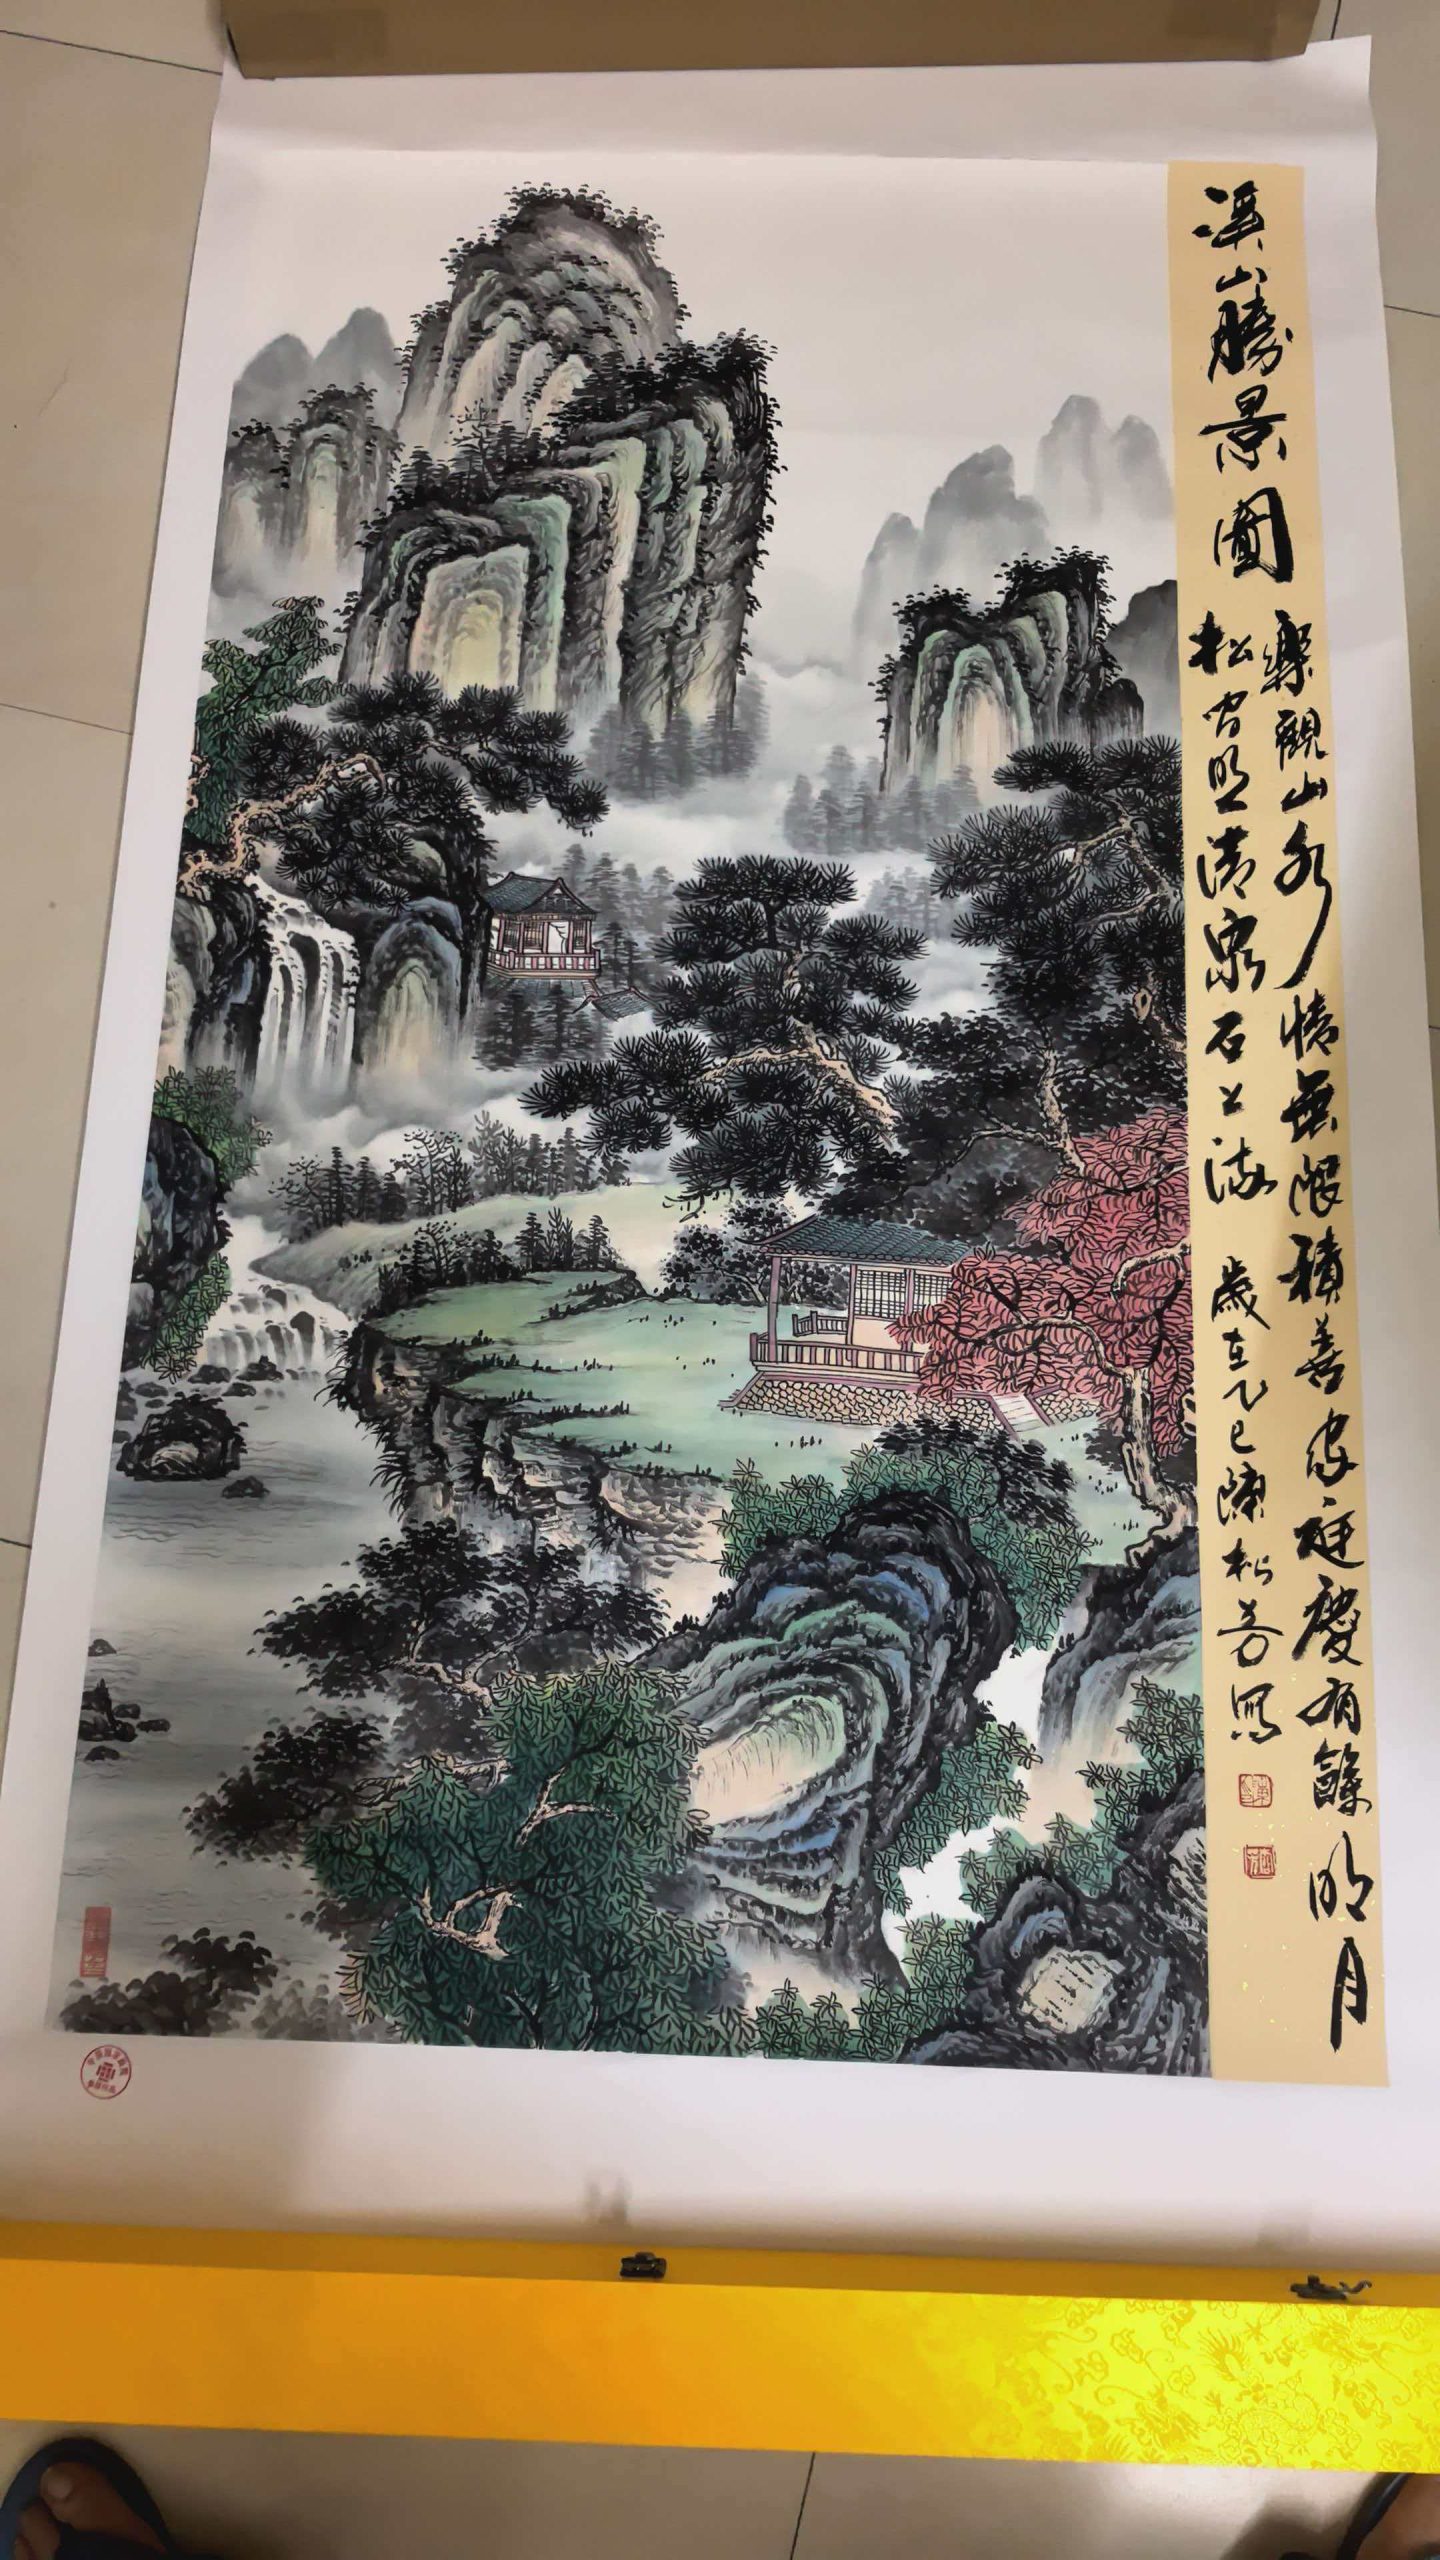 溪山勝景圖
樂觀山水情無限積善家庭慶有餘明月
松間照清泉石上流 歲在乙巳陳松芳寫